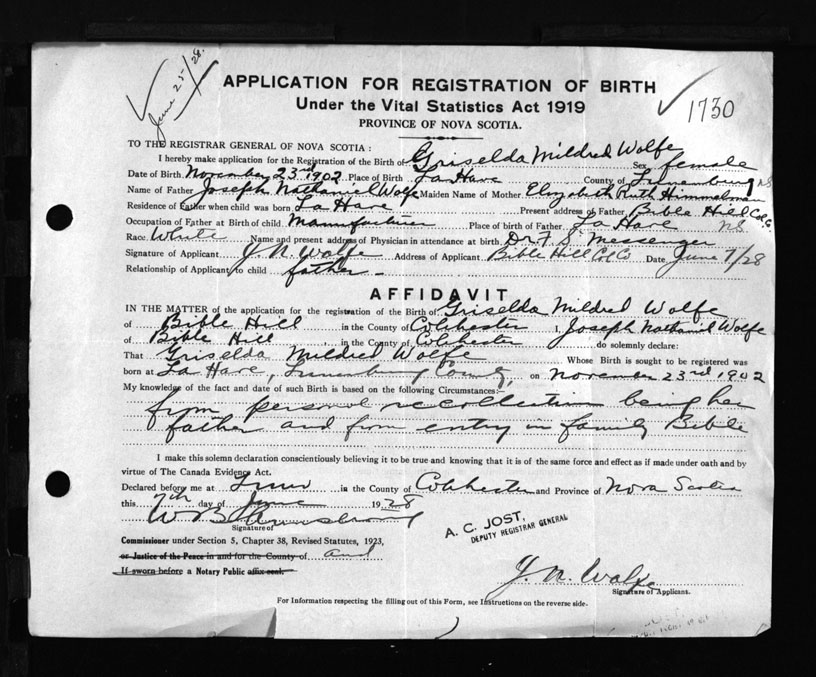 June 25/28.
APPLICATION FOR REGISTRATION OF BIRTH
1730
Under the Vital Statistics Act 1919
PROVINCE OF NOVA SCOTIA.
TO THE REGISTRAR GENERAL OF NOVA SCOTIA :
I hereby make application for the Registration of the Birth of Griselda Mildred Wolfe Sex female
Date of Birth November 23rd 1902 Place of Birth La Have County of Lunenburg NS
Name of Father Joseph Nathaniel Wolfe Maiden Name of Mother Elizabeth Ruth Himmelman
Residence of Father when child was born La Have Present address of Father Bible Hill Col. Co.
Occupation of Father at Birth of child Manufacturer Place of birth of Father La Have NS
Race White Name and present address of Physician in attendance at birth Dr. F. S. Messenger
Signature of Applicant J. N. Wolfe Address of Applicant Bible Hill Col Co Date June 7/28
Relationship of Applicant to child father -
AFFIDAVIT
IN THE MATTER of the application for the registration of the Birth of Griselda Mildred Wolfe
of Bible Hill in the County of Colchester I, Joseph Nathaniel Wolfe
of Bible Hill in the County of Colchester do solemnly declare:
That Griselda Mildred Wolfe Whose Birth is sought to be registered was
born at La Have, Lunenburg County, on November 23rd 1902
My knowledge of the fact and date of such Birth is based on the following Circumstances:-
from personal recollection being her
father and from entry in family Bible
I make this solemn declaration conscientiously believing it to be true and knowing that it is of the same force and effect as if made under oath and by
virtue of The Canada Evidence Act.
Declared before me at Truro in the County of Colchester and Province of Nova Scotia
this 7th day of June 1928
W B Armstrong
Signature of
Commissioner under Section 5, Chapter 38, Revised Statutes, 1923,
or Justice of the Peace in and for the County of and
If sworn before a Notary Public affix seal.
A. C. JOST,
DEPUTY REGISTRAR GENERAL
J. N. Wolfe
Signature of Applicant.
For Information respecting the filling out of this Form, see Instructions on the reverse side.